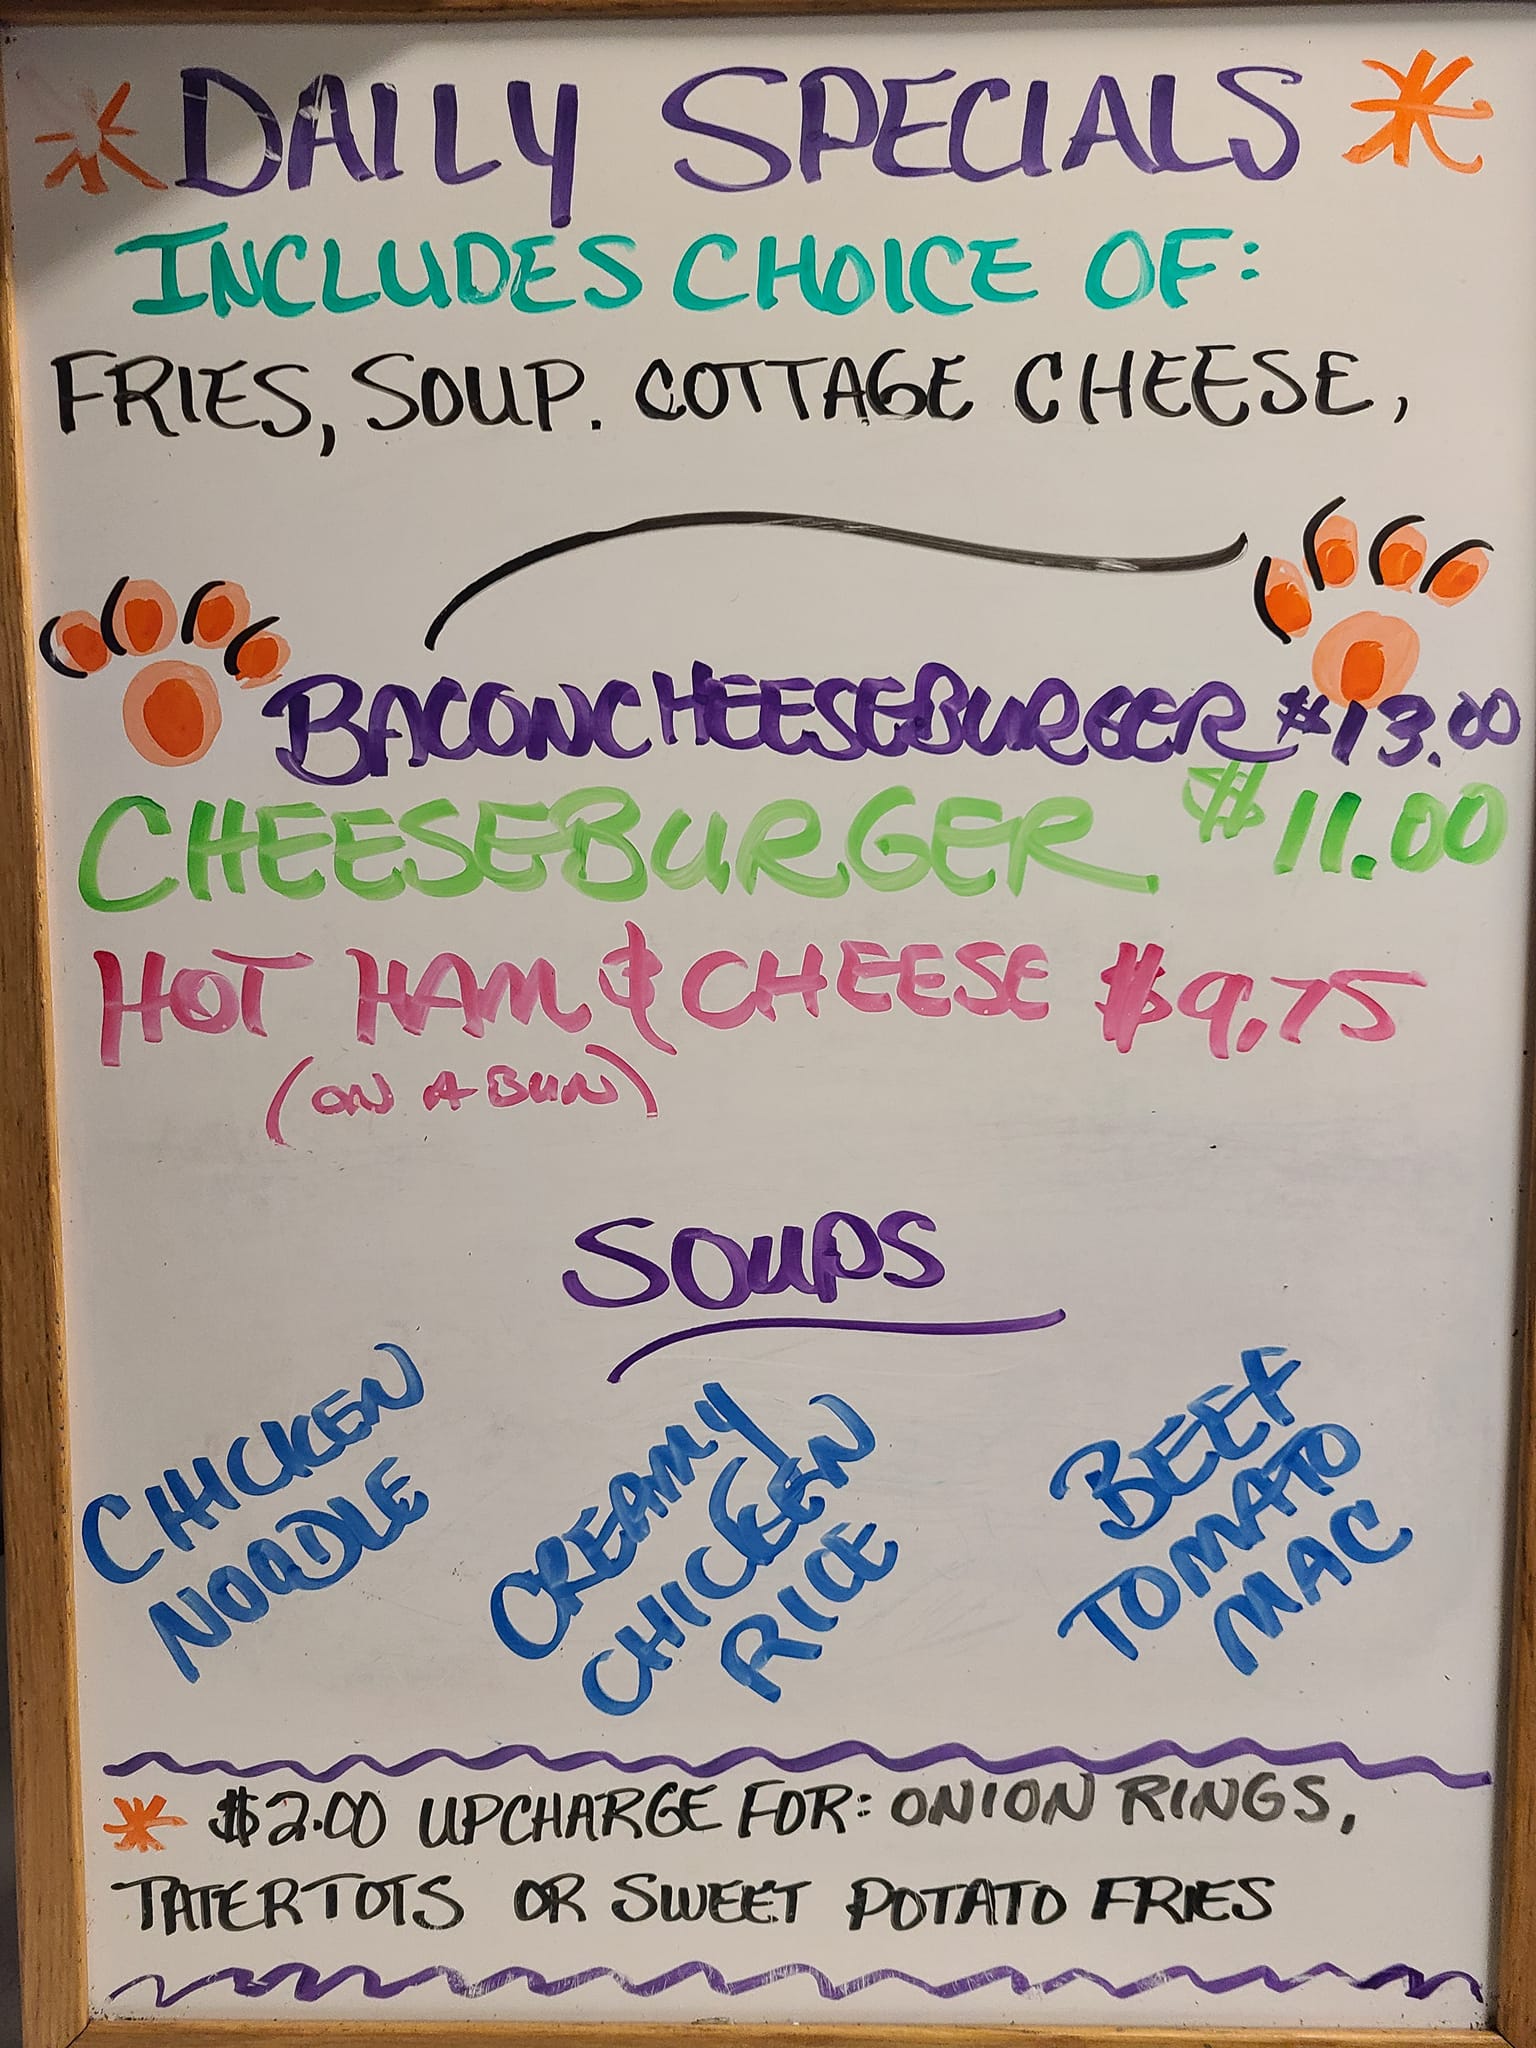 DAILY SPECIALS
INCLUDES CHOICE OF:
FRIES, SOUP. COTTAGE CHEESE,
BACONCHEESEBURGER $13.00
CHEESEBURGER $11.00
HOT HAM & CHEESE $9.75
(ON A BUN)
SOUPS
CHICKEN
NOODLE
CREAMY
CHICKEN
RICE
BEEF
TOMATO
MAC
* $2.00 UPCHARGE FOR: ONION RINGS,
TATERTOTS OR SWEET POTATO FRIES